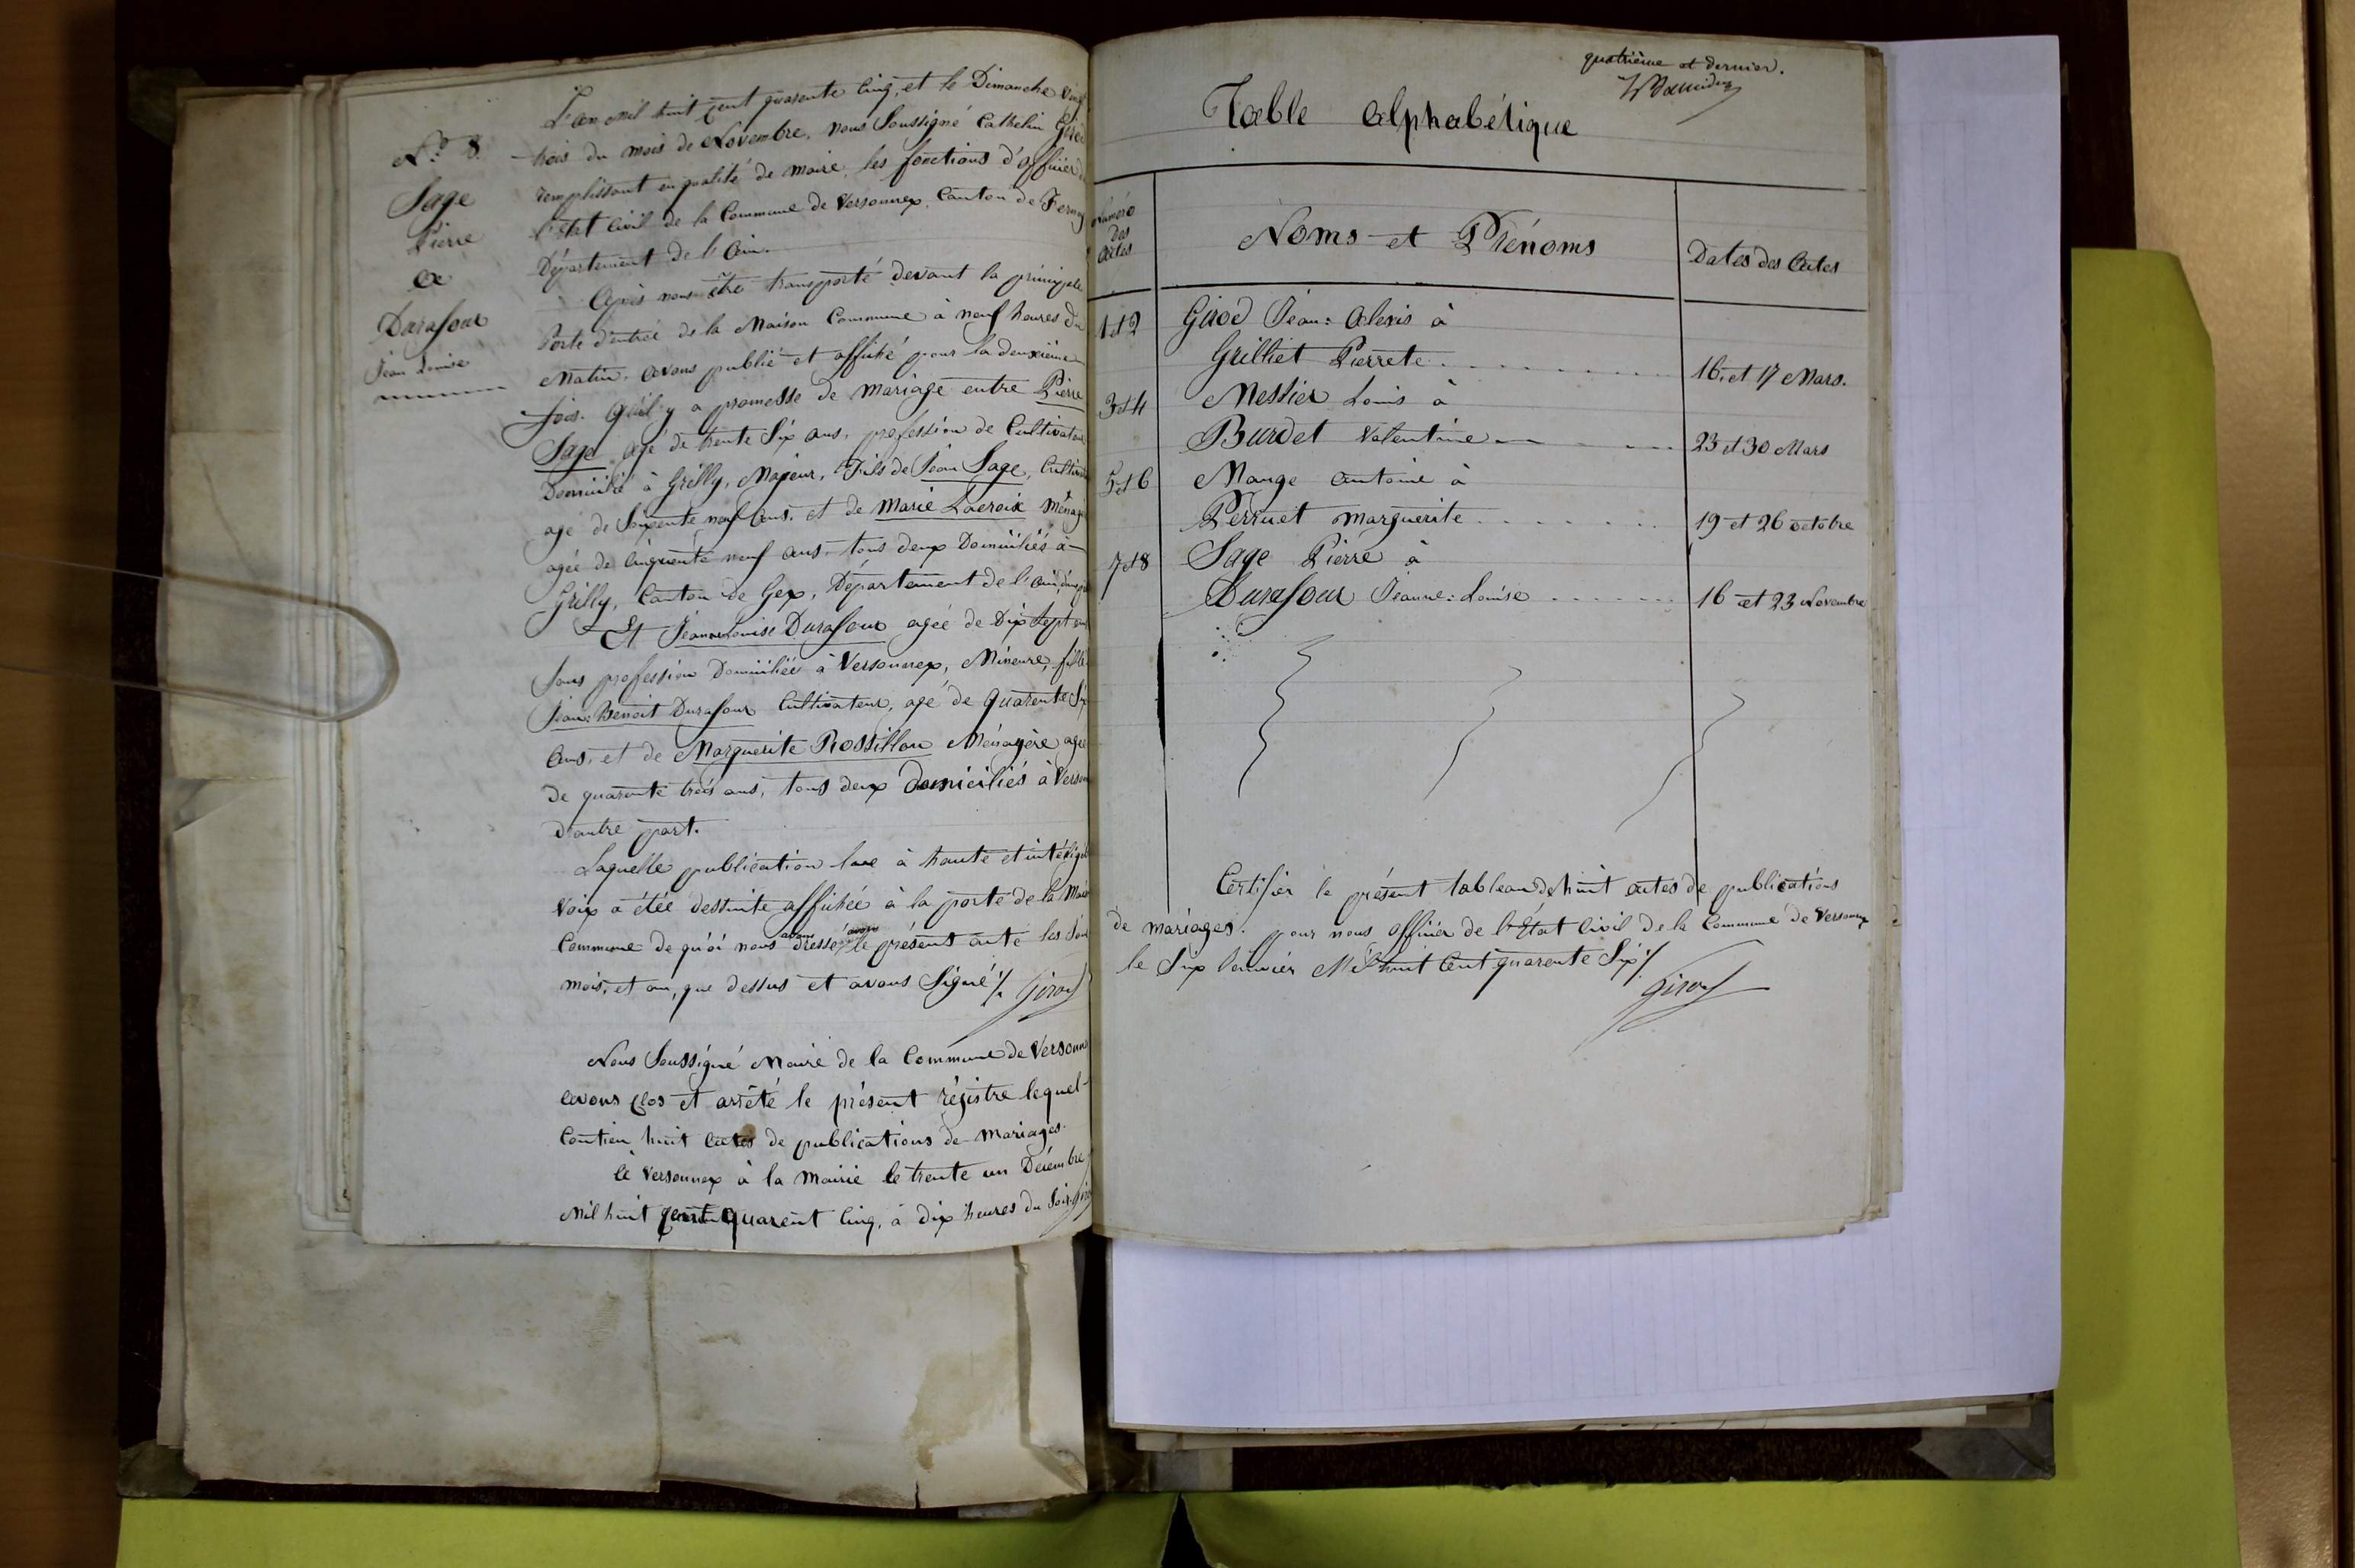 N.º 8.
Sage
Pierre
a
Durafour
Jean Louise
L'an mil huit cent quarente cinq, et le Dimanche vingt
trois du mois de Novembre, nous Soussigné Cathelin Girod
remplissant en qualité de maire, les fonctions d'officier de
l'état Civil de la Commune de Versonnex, Canton de Ferney
Département de l'Ain.
Après nous être transporté devant la principale
Porte d'entrée de la Maison Commune à neuf heures du
Matin, avons publié et affiché pour la deuxième
fois. Qu'il y a promesse de Mariage entre Pierre
Sage agé de trente Six ans, profession de Cultivateur
Domicilié à Grilly, Majeur, Fils de Jean Sage, Cultiva
agé de Soixente neuf ans, et de Marie Lacroix Ménag
agée de Cinquente neuf ans, tous deux Domiciliés à
Grilly, Canton de Gex, Département de l'Ain, d'une p
Et Jeanne Louise Durafour agée de Dix Sept ans
Sans profession Domiciliée à Versonnex, Mineure, fille
Jean: Benoit Durafour Cultivateur, agé de quarente Six
ans, et de Marguerite Rossillon Ménagère agée
de quarente trois ans, tous deux domiciliés à Verson
d'autre part.
Laquelle publication lue à haute et inteligib
Voix a étée destuite affichée à la porte de la Mais
Commune de qu'oi nous avons dressé le présent acte les Jour
mois, et an, que dessus et avons Signé ./. Girod
Nous Soussigné Maire de la Commune de Versonn
avons clos et arrêté le présent régistre lequel
Contien huit actes de publications de mariages.
à Versonnex à la Mairie le trente un Décembre
Mil huit cent quarent Cinq, à dix heures du Soir. Girod
quatrième et dernier.
Table alphabétique
Numéro des actes
Noms et Prénoms
Dates des Actes
1 et 2 Girod Jean: Alexis à
Grilliet Pierrete . . . . . . . . . . 16. et 17 Mars.
3 et 4 Messier Louis à
Burdet Valentine 23 et 30 Mars
5 et 6 Mange Antoine à
Perruet Marguerite . . . . . . . . 19 et 26 octobre
7 et 8 Sage Pierre à
Durafour Jeanne: Louise . . . . . . 16 et 23 Novembre
Certifier le présent tableau de huit actes de publications
de mariages. par nous officier de l'État Civil de la Commune de Versonnex
le Six Janvier Mil huit Cent quarente Six ./.
Girod